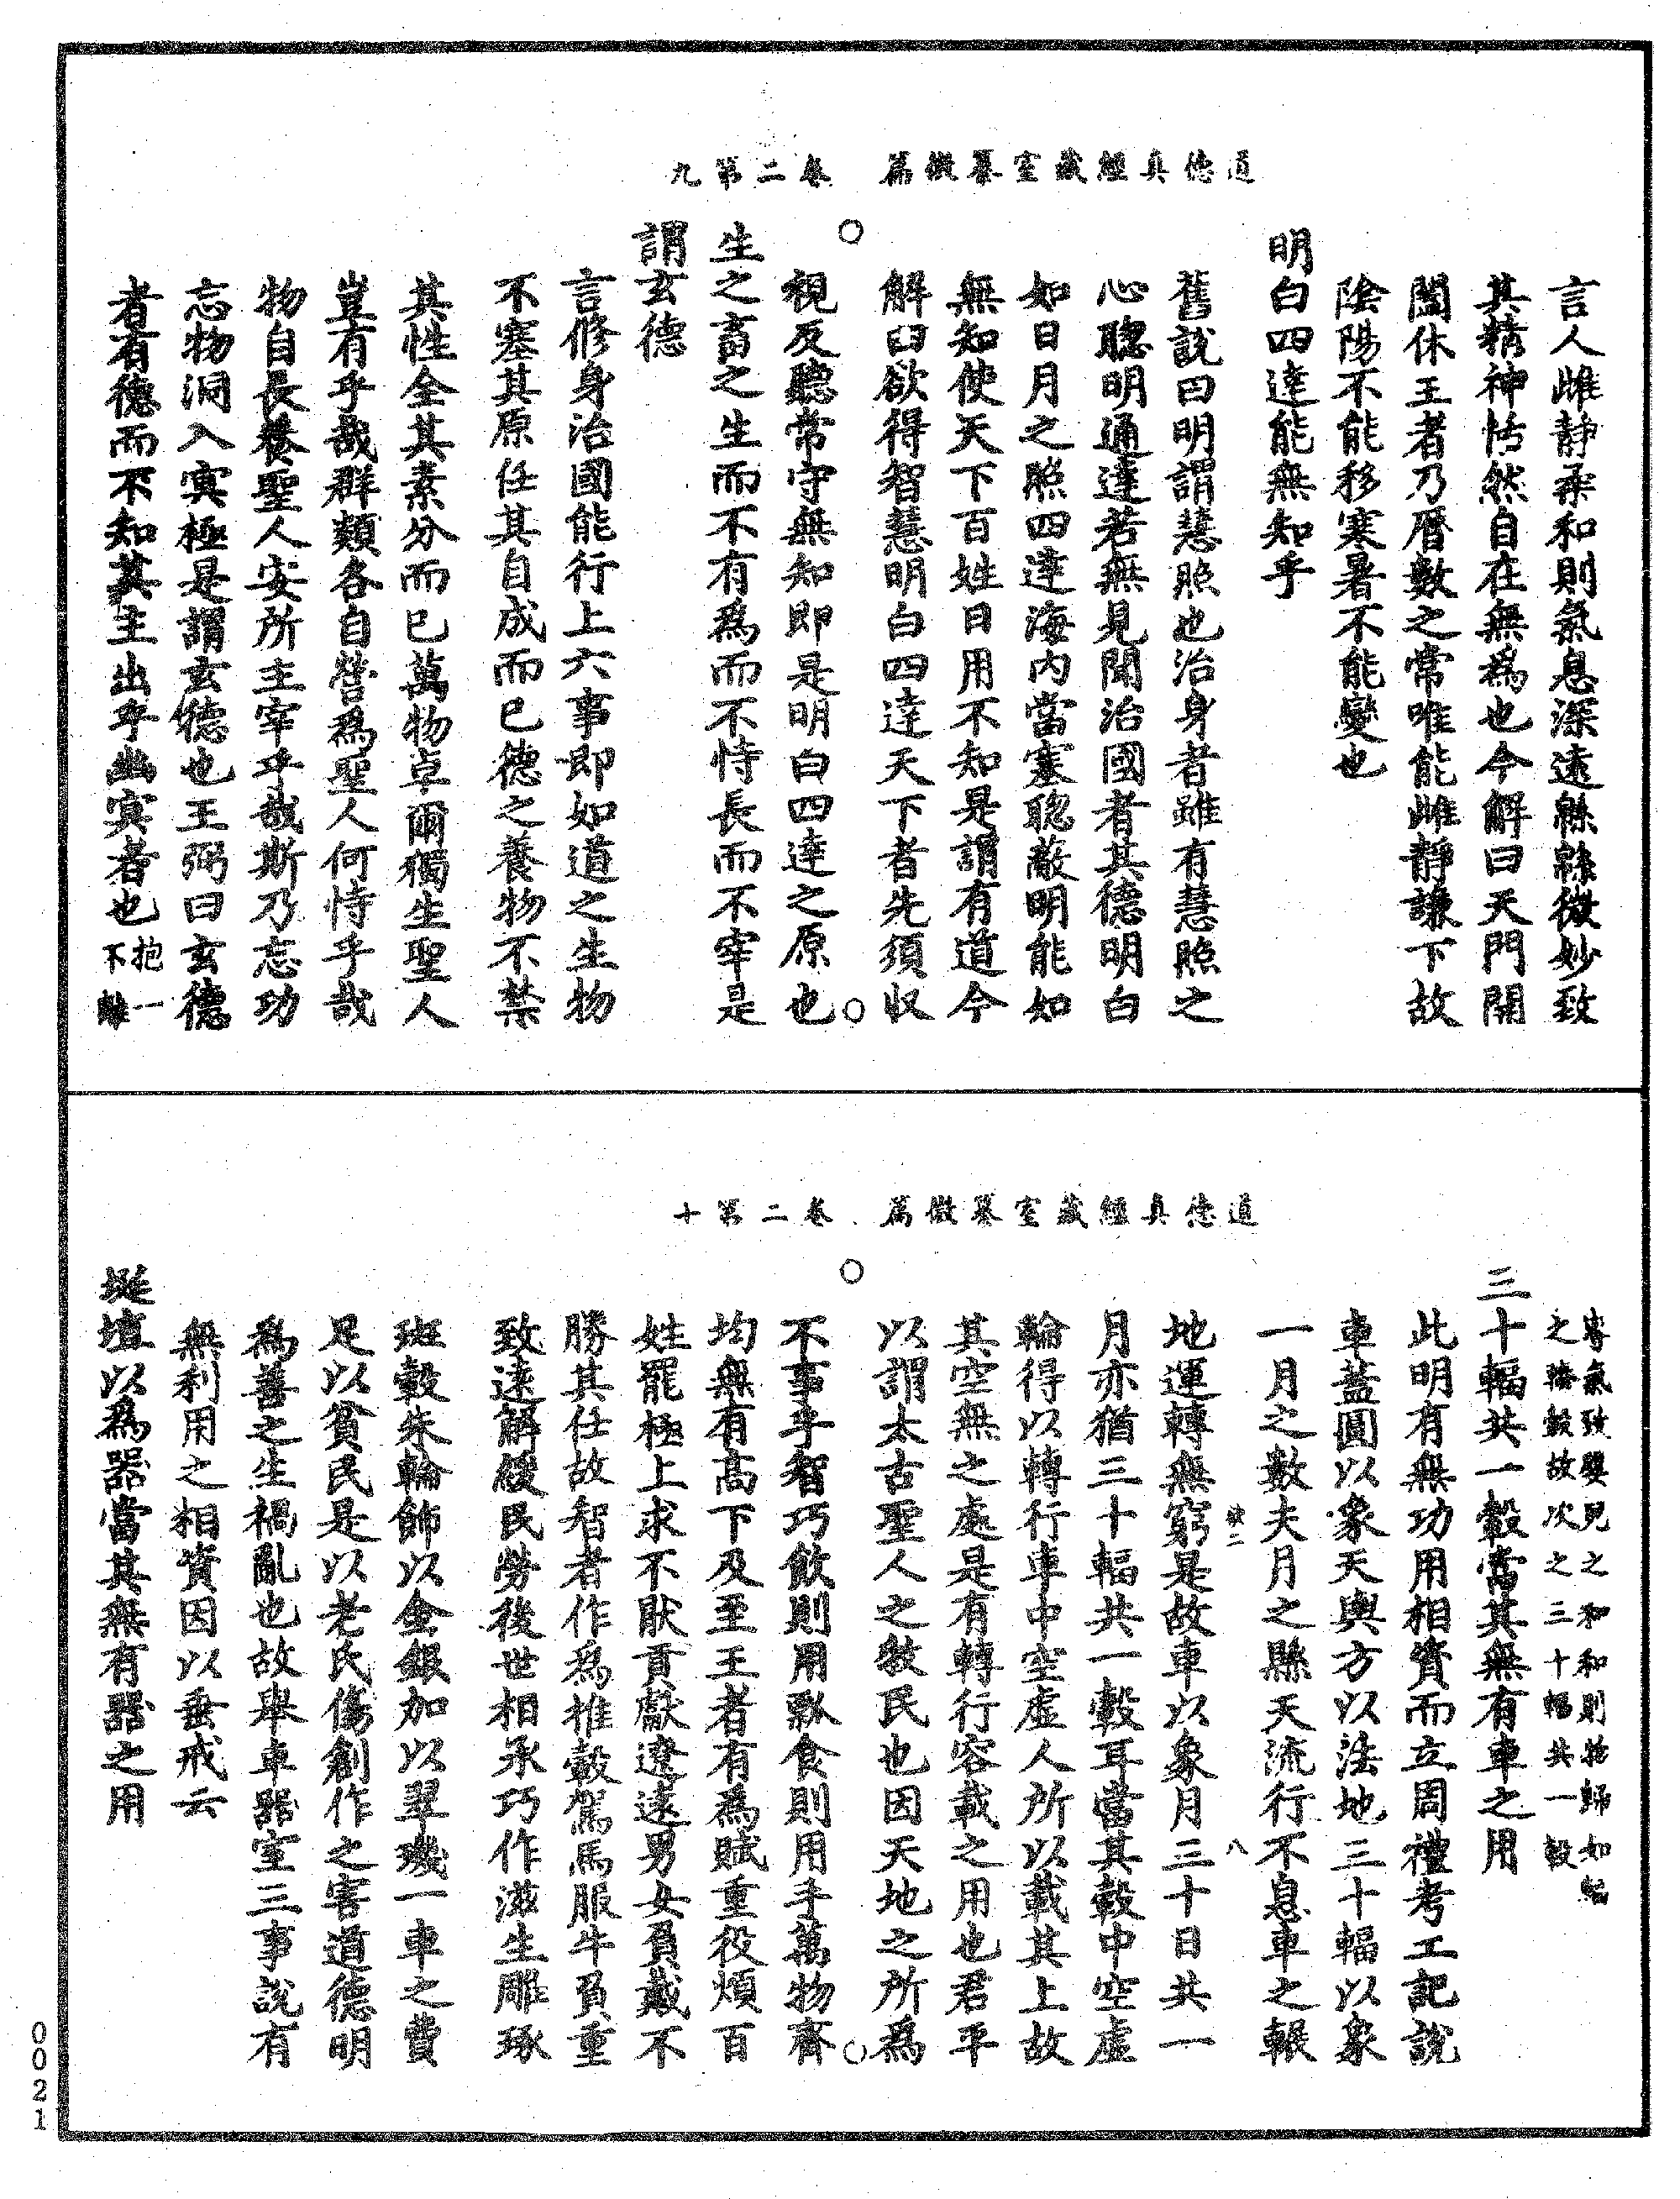 道德真經藏室纂微篇　卷二第九
言人雌靜柔和則氣息深遠緜緜微妙致
其精神恬然自在無為也今解曰天門開
闔休王者乃曆數之常唯能雌靜謙下故
陰陽不能移寒暑不能變也
明白四達能無知乎
舊說曰明謂慧照也治身者雖有慧照之
心聰明通達若無見聞治國者其德明白
如日月之照四達海內當塞聰蔽明能如
無知使天下百姓日用不知是謂有道今
解曰欲得智慧明白四達天下者先須收
視反聽常守無知即是明白四達之原也
生之畜之生而不有為而不恃長而不宰是
謂玄德
言修身治國能行上六事即如道之生物
不塞其原任其自成而已德之養物不禁
其性全其素分而已萬物卓爾獨生聖人
豈有乎哉群類各自營為聖人何恃乎哉
物自長養聖人安所主宰乎哉斯乃忘功
忘物洞入冥極是謂玄德也王弼曰玄德
者有德而不知其主出乎幽冥者也抱一
不離
道德真經藏室纂微篇　卷二第十
專氣致嬰兒之和和則物歸如輻
之輳轂故次之三十輻共一轂
三十輻共一轂當其無有車之用
此明有無功用相資而立周禮考工記說
車蓋圓以象天輿方以法地三十輻以象
一月之數夫月之縣天流行不息車之輾
地運轉無窮是故車以象月三十日共一
月亦猶三十輻共一轂耳當其轂中空虛
輪得以轉行車中空虛人所以載其上故
其空無之處是有轉行容載之用也君平
以謂太古聖人之教民也因天地之所為
不事乎智巧飲則用瓢食則用手萬物齊
均無有高下及至王者有為賦重役煩百
姓罷極上求不猒貢獻遼遠男女負戴不
勝其任故智者作為推轂駕馬服牛負重
致遠解緩民勞後世相承巧作滋生雕琢
斑轂朱輪飾以金銀加以翠璣一車之費
足以貧民是以老氏傷創作之害道德明
為善之生禍亂也故舉車器室三事說有
無利用之相資因以垂戒云
埏埴以為器當其無有器之用
八
0021